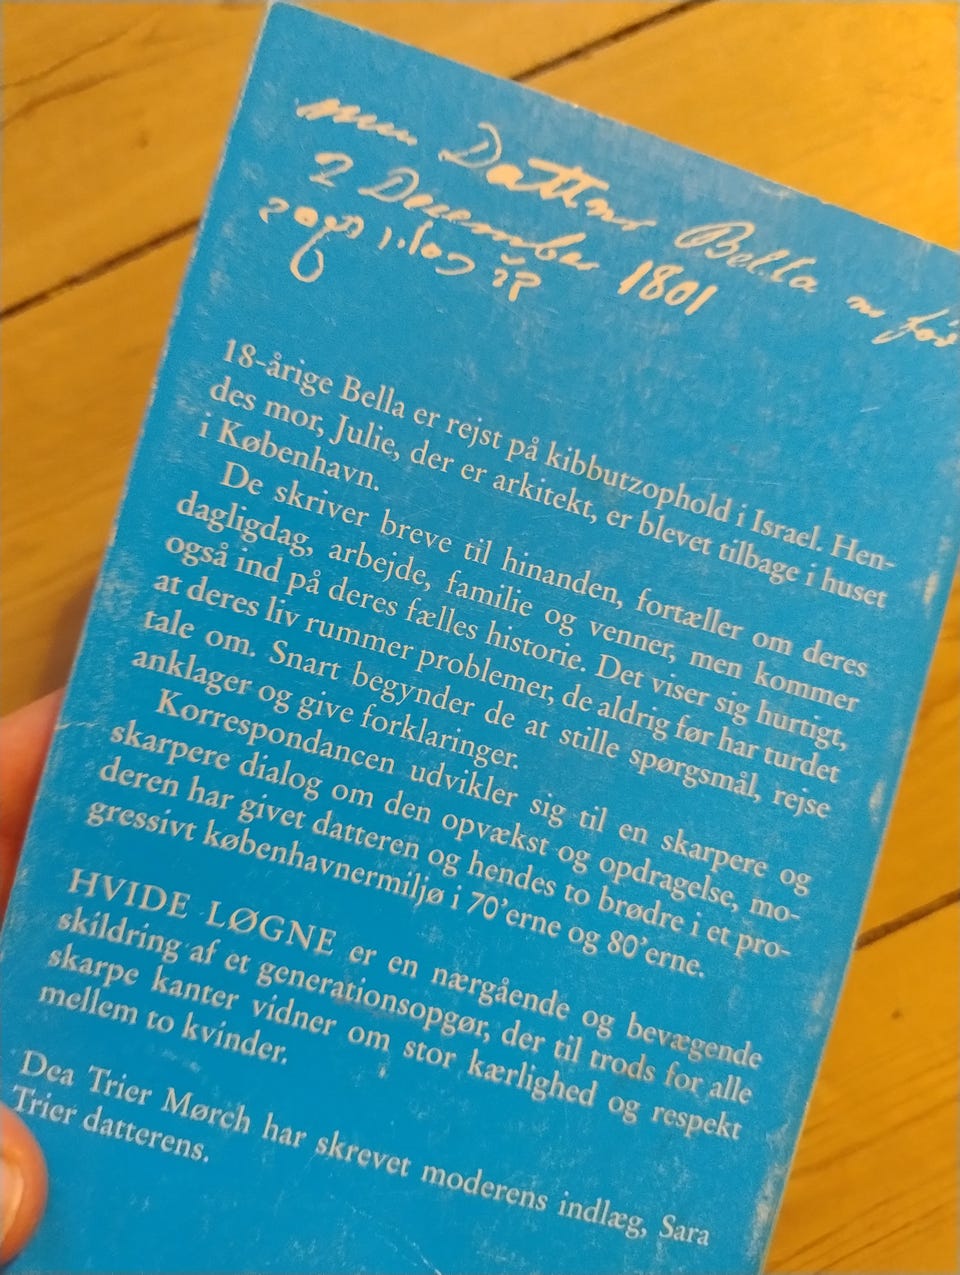 min Datter Bella
2 December 1801
18-årige Bella er rejst på kibbutzophold i Israel. Hen-
des mor, Julie, der er arkitekt, er blevet tilbage i huset
i København.
De skriver breve til hinanden, fortæller om deres
dagligdag, arbejde, familie og venner, men kommer
også ind på deres fælles historie. Det viser sig hurtigt,
at deres liv rummer problemer, de aldrig før har turdet
tale om. Snart begynder de at stille spørgsmål, rejse
anklager og give forklaringer.
Korrespondancen udvikler sig til en skarpere og
skarpere dialog om den opvækst og opdragelse, mo-
deren har givet datteren og hendes to brødre i et pro-
gressivt københavnermiljø i 70'erne og 80'erne.
HVIDE LØGNE er en nærgående og bevægende
skildring af et generationsopgør, der til trods for alle
skarpe kanter vidner om stor kærlighed og respekt
mellem to kvinder.
Dea Trier Mørch har skrevet moderens indlæg, Sara
Trier datterens.